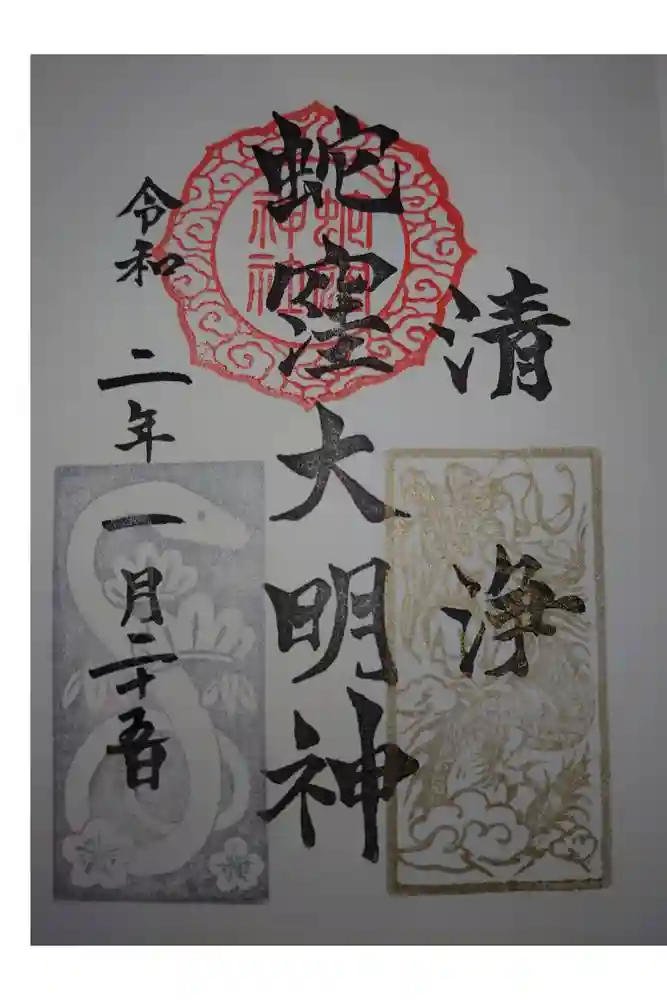 清浄
蛇窪大明神
蛇窪
神社
令和二年一月二十五日